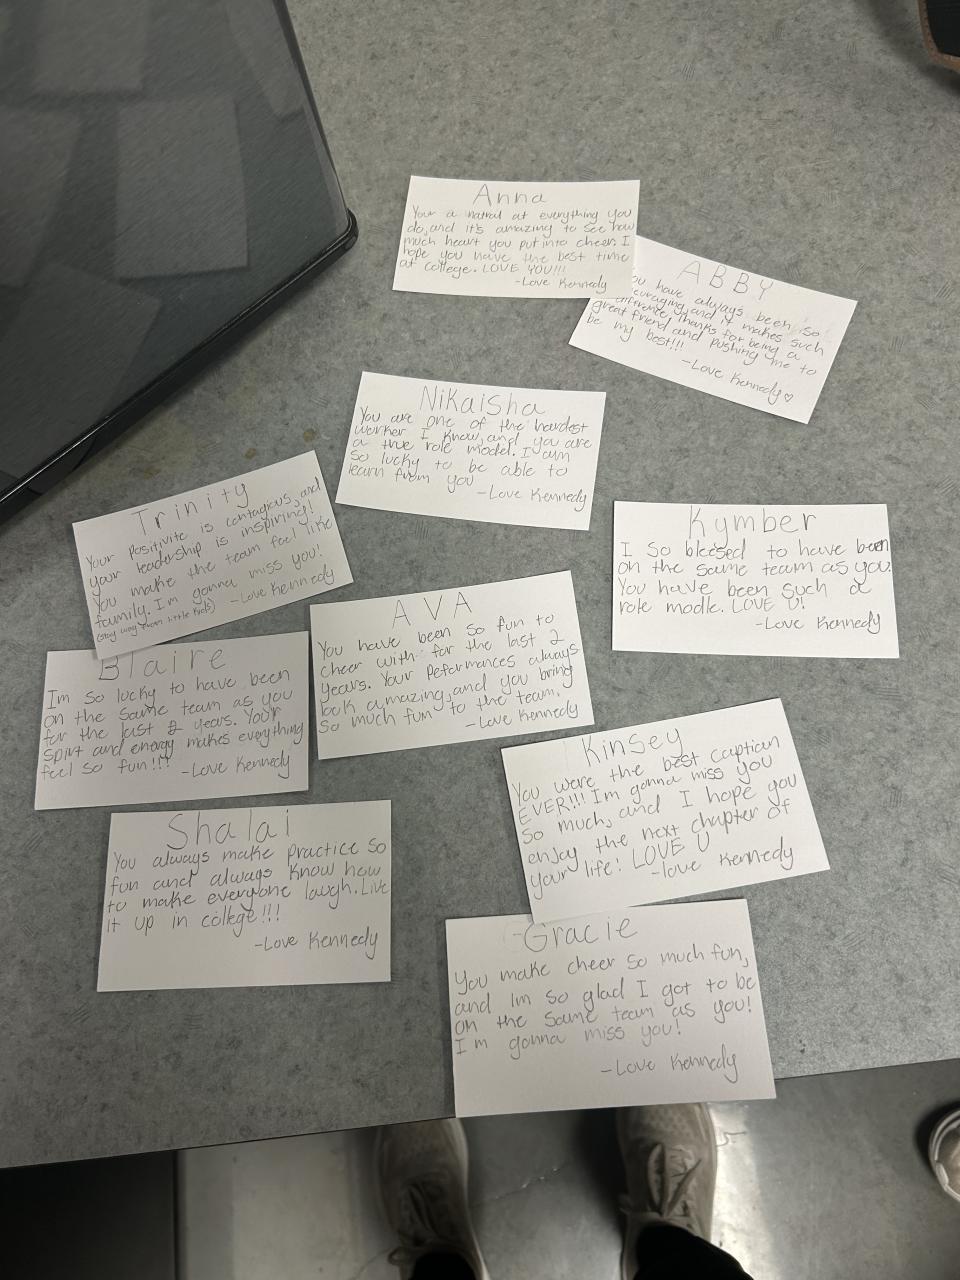 Anna
Your a natral at everything you
do, and it's amazing to see how
much heart you put into cheer. I
hope you have the best time
at college. LOVE YOU!!!
-Love Kennedy
ABBY
you have always been so
and it makes such
difference, thanks for being a
great friend and pushing me to
be my best!!!
-Love Kennedy♡
Nikaisha
You are one of the hardest
worker I know, and you are
a true role model. I am
so lucky to be able to
learn from you
-Love Kennedy
Trinity
Your positivite is contagious, and
your leadership is inspiring!
You make the team feel like
family. I'm gonna miss you!
(stay way from little kids) -Love Kennedy
Kymber
I so blessed to have been
on the same team as you.
You have been such a
role modle. LOVE U!
-Love Kennedy
AVA
You have been so fun to
cheer with for the last 2
years. Your Peformances always
look amazing, and you bring
so much fun to the team.
-Love Kennedy
Blaire
Im so lucky to have been
on the same team as you
for the last 2 years. Your
spirt and energy makes everything
feel so fun!!! -Love Kennedy
Kinsey
You were the best captian
EVER!!! Im gonna miss you
so much, and I hope you
enjoy the next chapter of
your life! LOVE U
-love Kennedy
Shalai
You always make Practice so
fun and always know how
to make everyone laugh. Live
it up in college!!!
-Love Kennedy
Gracie
You make cheer so much fun,
and Im so glad I got to be
on the same team as you!
I'm gonna miss you!
-Love Kennedy